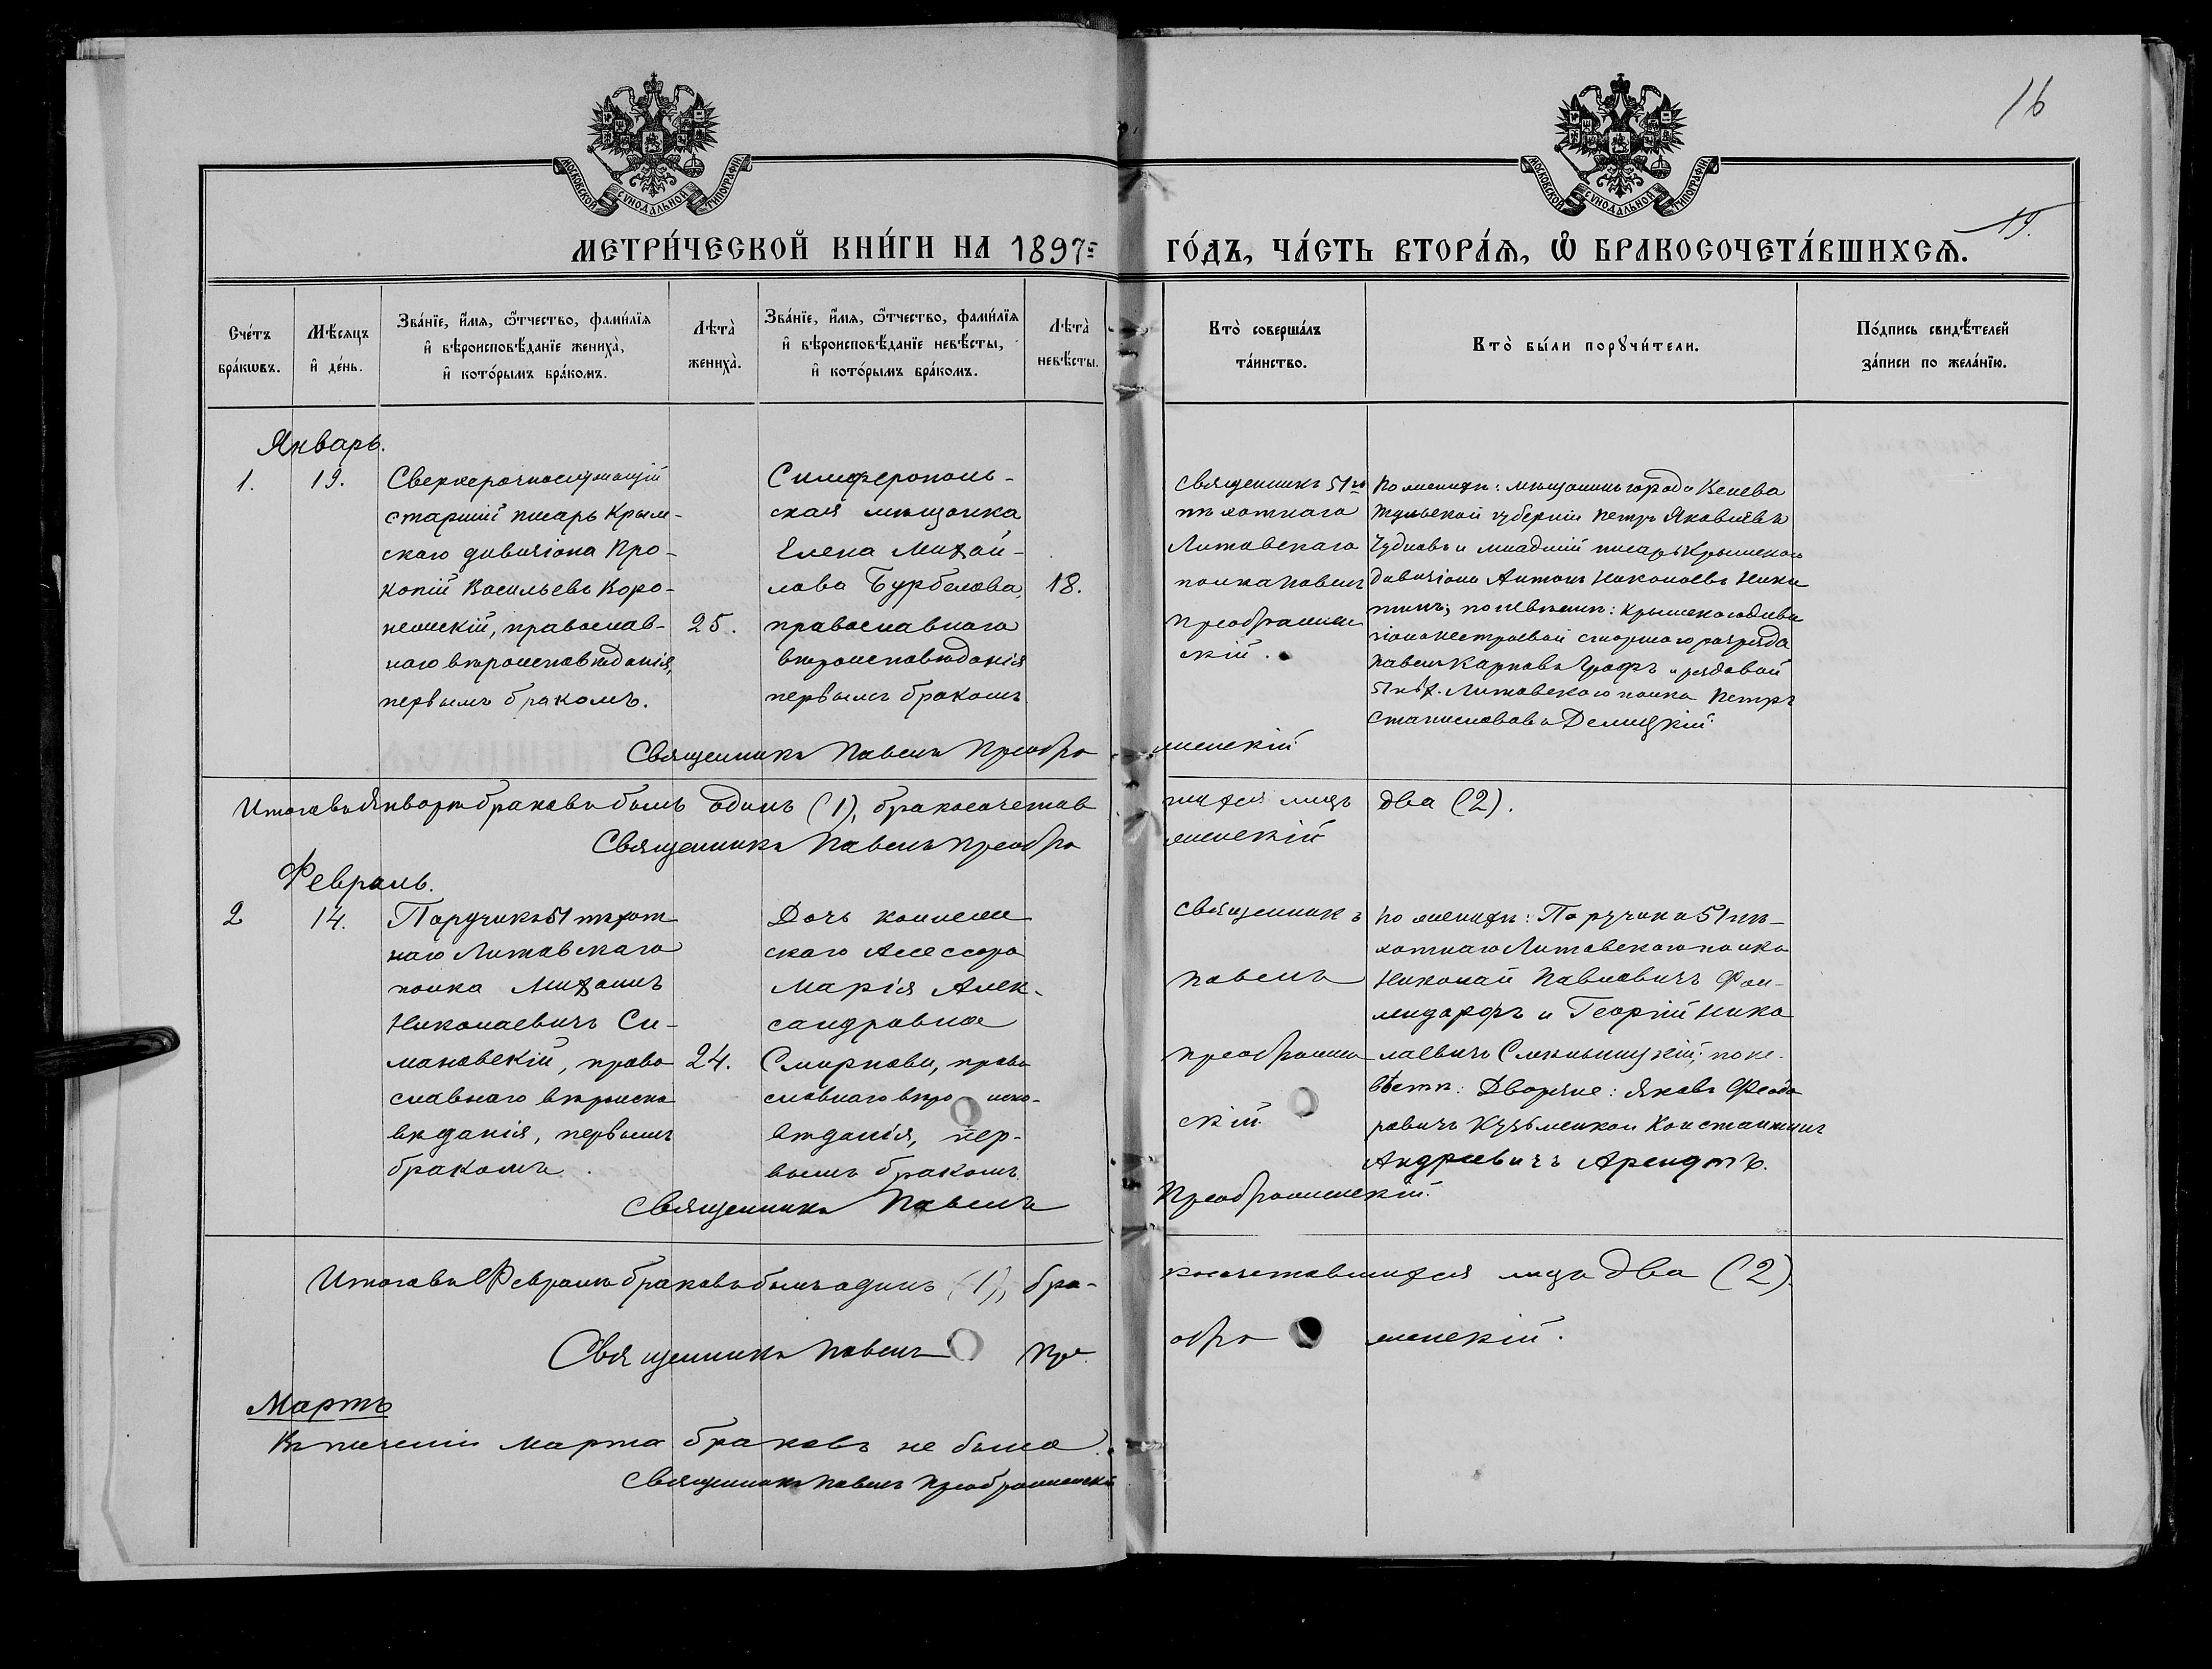 16
МОСКОВСКОЙ СѴНОДАЛЬНОЙ ТИПОГРАФІИ
МОСКОВСКОЙ СѴНОДАЛЬНОЙ ТИПОГРАФІИ
19.
МЕТРИ́ЧЕСКОЙ КНИ́ГИ НА 1897 ГО́ДЪ, ЧА́СТЬ ВТОРА́Ѧ, Ѽ БРАКОСОЧЕТА́ВШИХСѦ.
Сче́тъ бра́кѡвъ.
Мѣ́сяцъ и҆ де́нь.
Зва́нїе, и҆́мѧ, ѻ҆́тчество, фами́лїя и҆ вѣроисповѣ́данїе жениха̀, и҆ кото́рымъ бра́комъ.
Лѣта̀ жениха̀.
Зва́нїе, и҆́мѧ, ѻ҆́тчество, фами́лїя и҆ вѣроисповѣ́данїе невѣ́сты, и҆ кото́рымъ бра́комъ.
Лѣта̀ невѣ́сты.
Кто̀ соверша́лъ та́инство.
Кто̀ бы́ли порꙋчи́тели.
По́дпись свидѣ́телей за́писи по жела́нїю.
Январь.
1.
19.
Сверхсрочнослужащій
старшій писарь Крым-
скаго дивизіона Про-
копій Васильевъ Воро-
нежскій, православ-
наго вѣроисповѣданія,
первымъ бракомъ.
25.
Симферополь-
ская мѣщанка
Елена Михай-
лова Бурбелова,
православнаго
вѣроисповѣданія
первымъ бракомъ
18.
Священникъ 51го
пѣхотнаго
Литовскаго
полка Павелъ
Преображен
скій.
По женихѣ: мѣщанинъ города Венева
Тульской губерніи Петръ Яковлевъ
Чудновъ и младшій писарь Крымскаго
дивизіона Антонъ Николаевъ Ники
тинъ; по невѣстѣ: Крымскаго диви
зіона нестроевой старшаго разряда
Павелъ Карповъ Графъ и рядовой
51 пѣх. Литовскаго полка Петръ
Станиславовъ Делицкій.
Священникъ Павелъ Преобра женскій
Итого въ Январѣ браковъ былъ одинъ (1), бракосочетав шихся лицъ два (2).
Священникъ Павелъ Преобра женскій
Февраль.
2
14.
Поручикъ 51 пѣхот
наго Литовскаго
полка Михаилъ
Николаевичъ Си-
мановскій, право
славнаго вѣроиспо
вѣданія, первымъ
бракомъ.
24.
Дочь коллеж
скаго Асессора
Марія Алек-
сандровна
Смирнова, право
славнаго вѣро испо-
вѣданія, пер-
вымъ бракомъ.
Священникъ
Павелъ
Преображен
скій.
По женихѣ: Поручики 51 пѣ-
хотнаго Литовскаго полка
Николай Павловичъ Фол-
мндорфъ и Георгій Нико
лаевичъ Смѣльницкій; по не-
вѣстѣ: Дворяне: Яковъ Феодо
ровичъ Кузьменко и Константинъ
Андреевичъ Арендтъ.
Священникъ Павелъ Преображенскій.
Итого въ Февралѣ браковъ былъ одинъ (1), бра- косочетавшихся лица два (2).
Священникъ Павелъ Пре обра женскій.
Мартъ
Въ теченіи марта браковъ не было.
Священникъ Павелъ Преображенскій